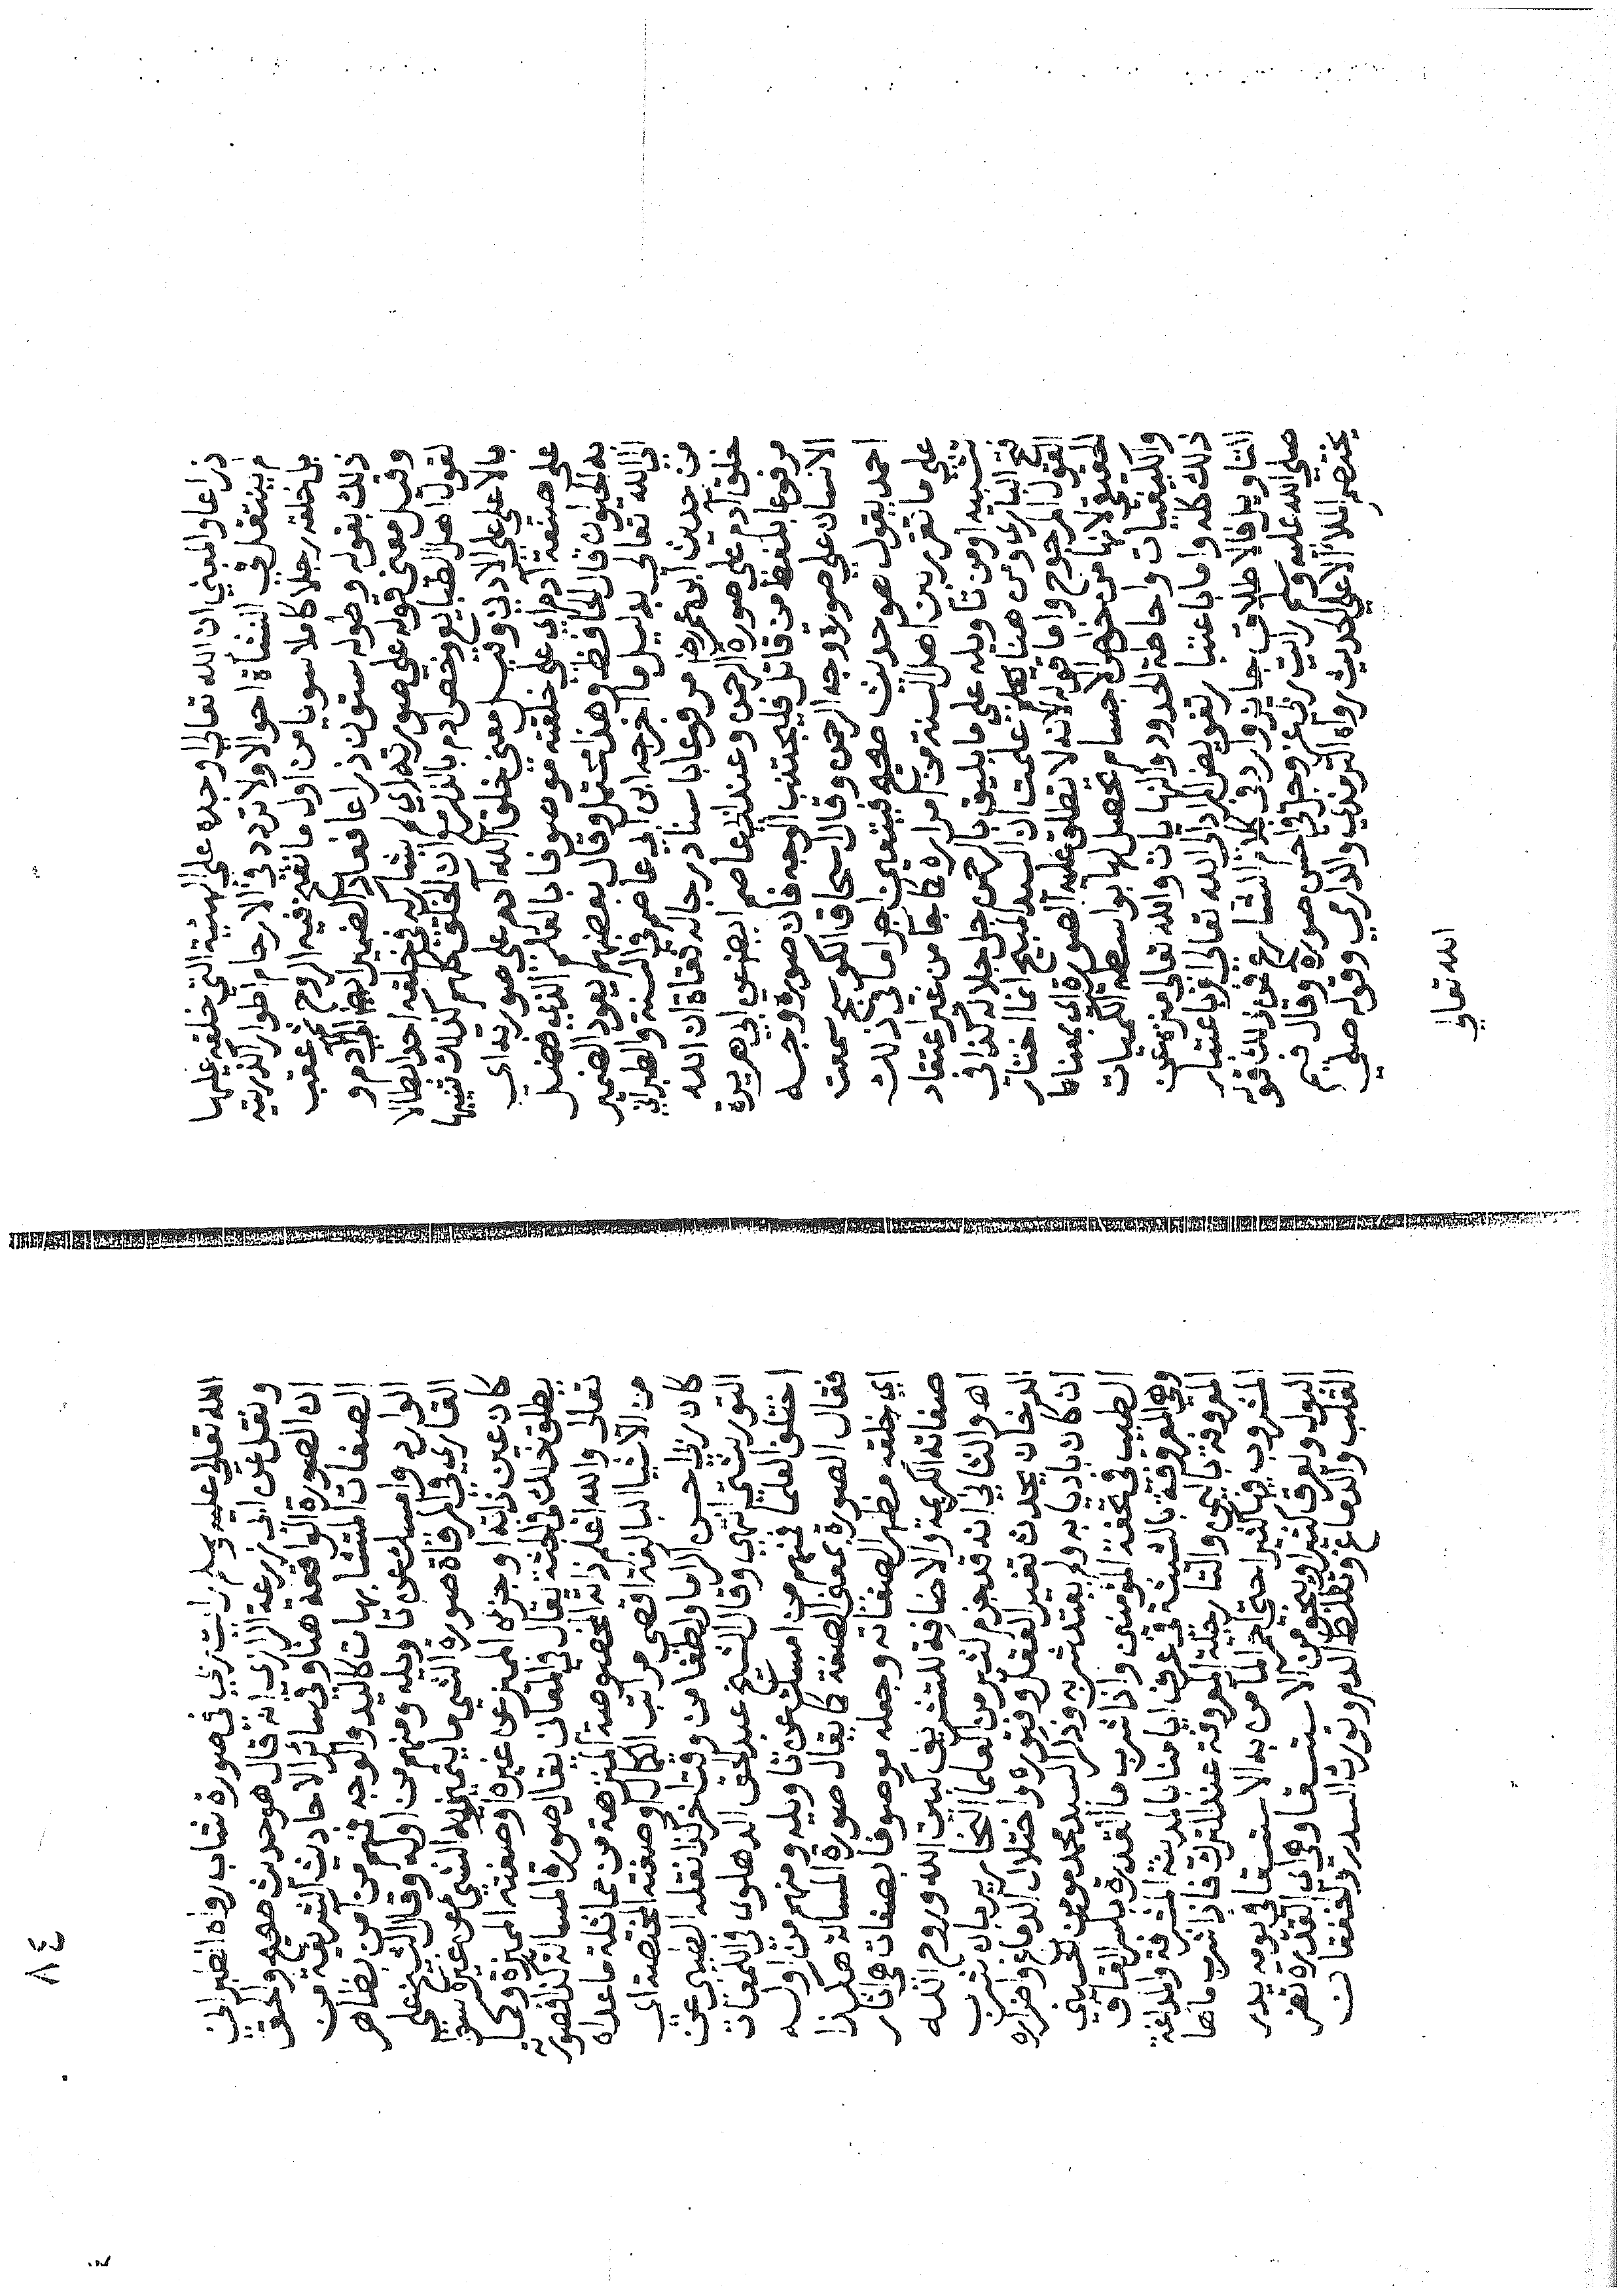 ذراعا والمعني ان الله تعالي اوجده علي الهيئة التي خلقه عليها
لم ينتقل في النشأة احوالا ولا تردد في الارحام اطوارا كذريته
بل خلقه رجلا كاملا سويا من اول ما نفخ فيه الروح ثم عقب
ذلك بقوله وطوله ستون ذراعا فعاد الضمير ايضا الي آدم و
وقيل معني قوله علي صورته اي لم يشاركه في خلقه احد ابطالا
لقول اهل الطبايع وخص ادم بالذكر مع ان الخلق كلهم كذلك تنبيها
بالاعلي علي الادني وقيل معني خلق الله آدم علي صورته اي
علي صفته آدم اي علي خلقته موصوفا بالعلم الذي فضل
به الحيوان قال الحافظ وهذا محتمل وقال بعضهم يعود الضمير
الي الله تعالي بدليل ما اخرجه ابن ابي عاصم في السنة والطبراني
من حديث ابن عمر رض مرفوعا باسناد رجاله ثقاة ان الله
خلق آدم علي صورة الرحمن وعند ابي عاصم ايضا عن ابي هريرة
مرفوعا بلفظ من قاتل فليجتنب الوجه فان صورة وجه
الانسان علي صورة وجه الرحمن وقال اسحاق الكوسج سمعت
احمد يقول هو حديث صحيح فيتعين اجرا ما في ذلك
علي ما تقرر بين اهل السنة من امراره كما جا من غير اعتقاد
تشبيه او من تأويله علي ما يليق بالرحمن جل جلاله كذا في
فتح الباري ومن هنا علمت ان السيد المبيح انما اختار
القول المرجوح واما قوله لانه لا تطلق عليه الصورة اي بمعناها
الحقيقي لانها من خواص الاجسام تحصل لها بواسطة الكميات
والكيفيات واحاطة الحدود والنهايات والله تعالي منزه عن
ذلك كله واما باعتبار تفويض المراد الي الله تعالي او باعتبار
التاويل فالاطلاق جايز وارد في كلام الشارع فمن ذلك قوله
صلي الله عليه وسلم رايت ربي عز وجل في احسن صورة وقال فيم
يختصم الملأ الاعلي الحديث رواه الترمذي والدارمي وقوله صلي
الله تعالي
٨٤
الله تعالي عليه وسلم رايت ربي في صورة شاب رواه الطبراني
ونقل عن ابي زرعة الرازي انه قال هو حديث صحيح والحق
ان الصورة الواقعة هنا وفي سائر الاحاديث الشريفة من
الصفات المتشابهات كاليد والوجه فمنهم من آمن بظاهر
الوارد وامسك عن تاويله ومنهم من اوله وقال الشيخ علي
القاري في المرقاة صورة الشي ما يتميز به الشي عن غيره سوا
كان عين ذاته او جزه المميز عن غيره او صفته المميزة وكما
يطلق ذلك في الجثة يقال في المعاني يقال صورة المسالة كذا فصورته
تعالي والله اعلم ذاته المخصوصة المنزهة من مماثلة ما عداه
من الاشيا البالغة اقصي مراتب الكمال او صفته المختصة اي
كان ربي احسن اكراما ولطفا من وقت اخر كذا نقله الطيبي عن
التوربشتي انتهي وقال الشيخ عبد الحق الدهلوي في اللمعات
اختلف العلما فمنهم من امسك عن تاويله ومنهم من اوله
فقال الصورة بمعني الصفة كما يقال صورة المسالة هكذا
اي خلقه مظهرا لصفاته وجعله موصوفا بصفات هي اثار
صفاته الكريمة والاضافة للتشريف كبيت الله وروح الله
اهـ والثاني انه قد جزم كثير من العلما النحارير بان شرب
الدخان يحدث تغير العقل وفتوره واختلال الدماغ واضراره
ان كان باديا به ولم يعتد شربه وذكر السيد محمد مومن الحسيني
الطبيب في تحفة المؤمنين واذا شرب ما القدرة بكسر القاف
وهي المعروفة بالشيشة في عرف ايامنا بالمدينة المشرفة والمداغة
المعروفة باليمن والنارجيلة المعروفة عند الترك فاذا شرب ماها
المشروب فيها كثيرا حتي احمر الما من به الاستسقا في يومه يدر
البول ويعرق كثيرا وينجو من الاستسقا وهي اي القدرة تضر
القلب والدماغ وتغلظ الدم وتورث السدر والخفقان